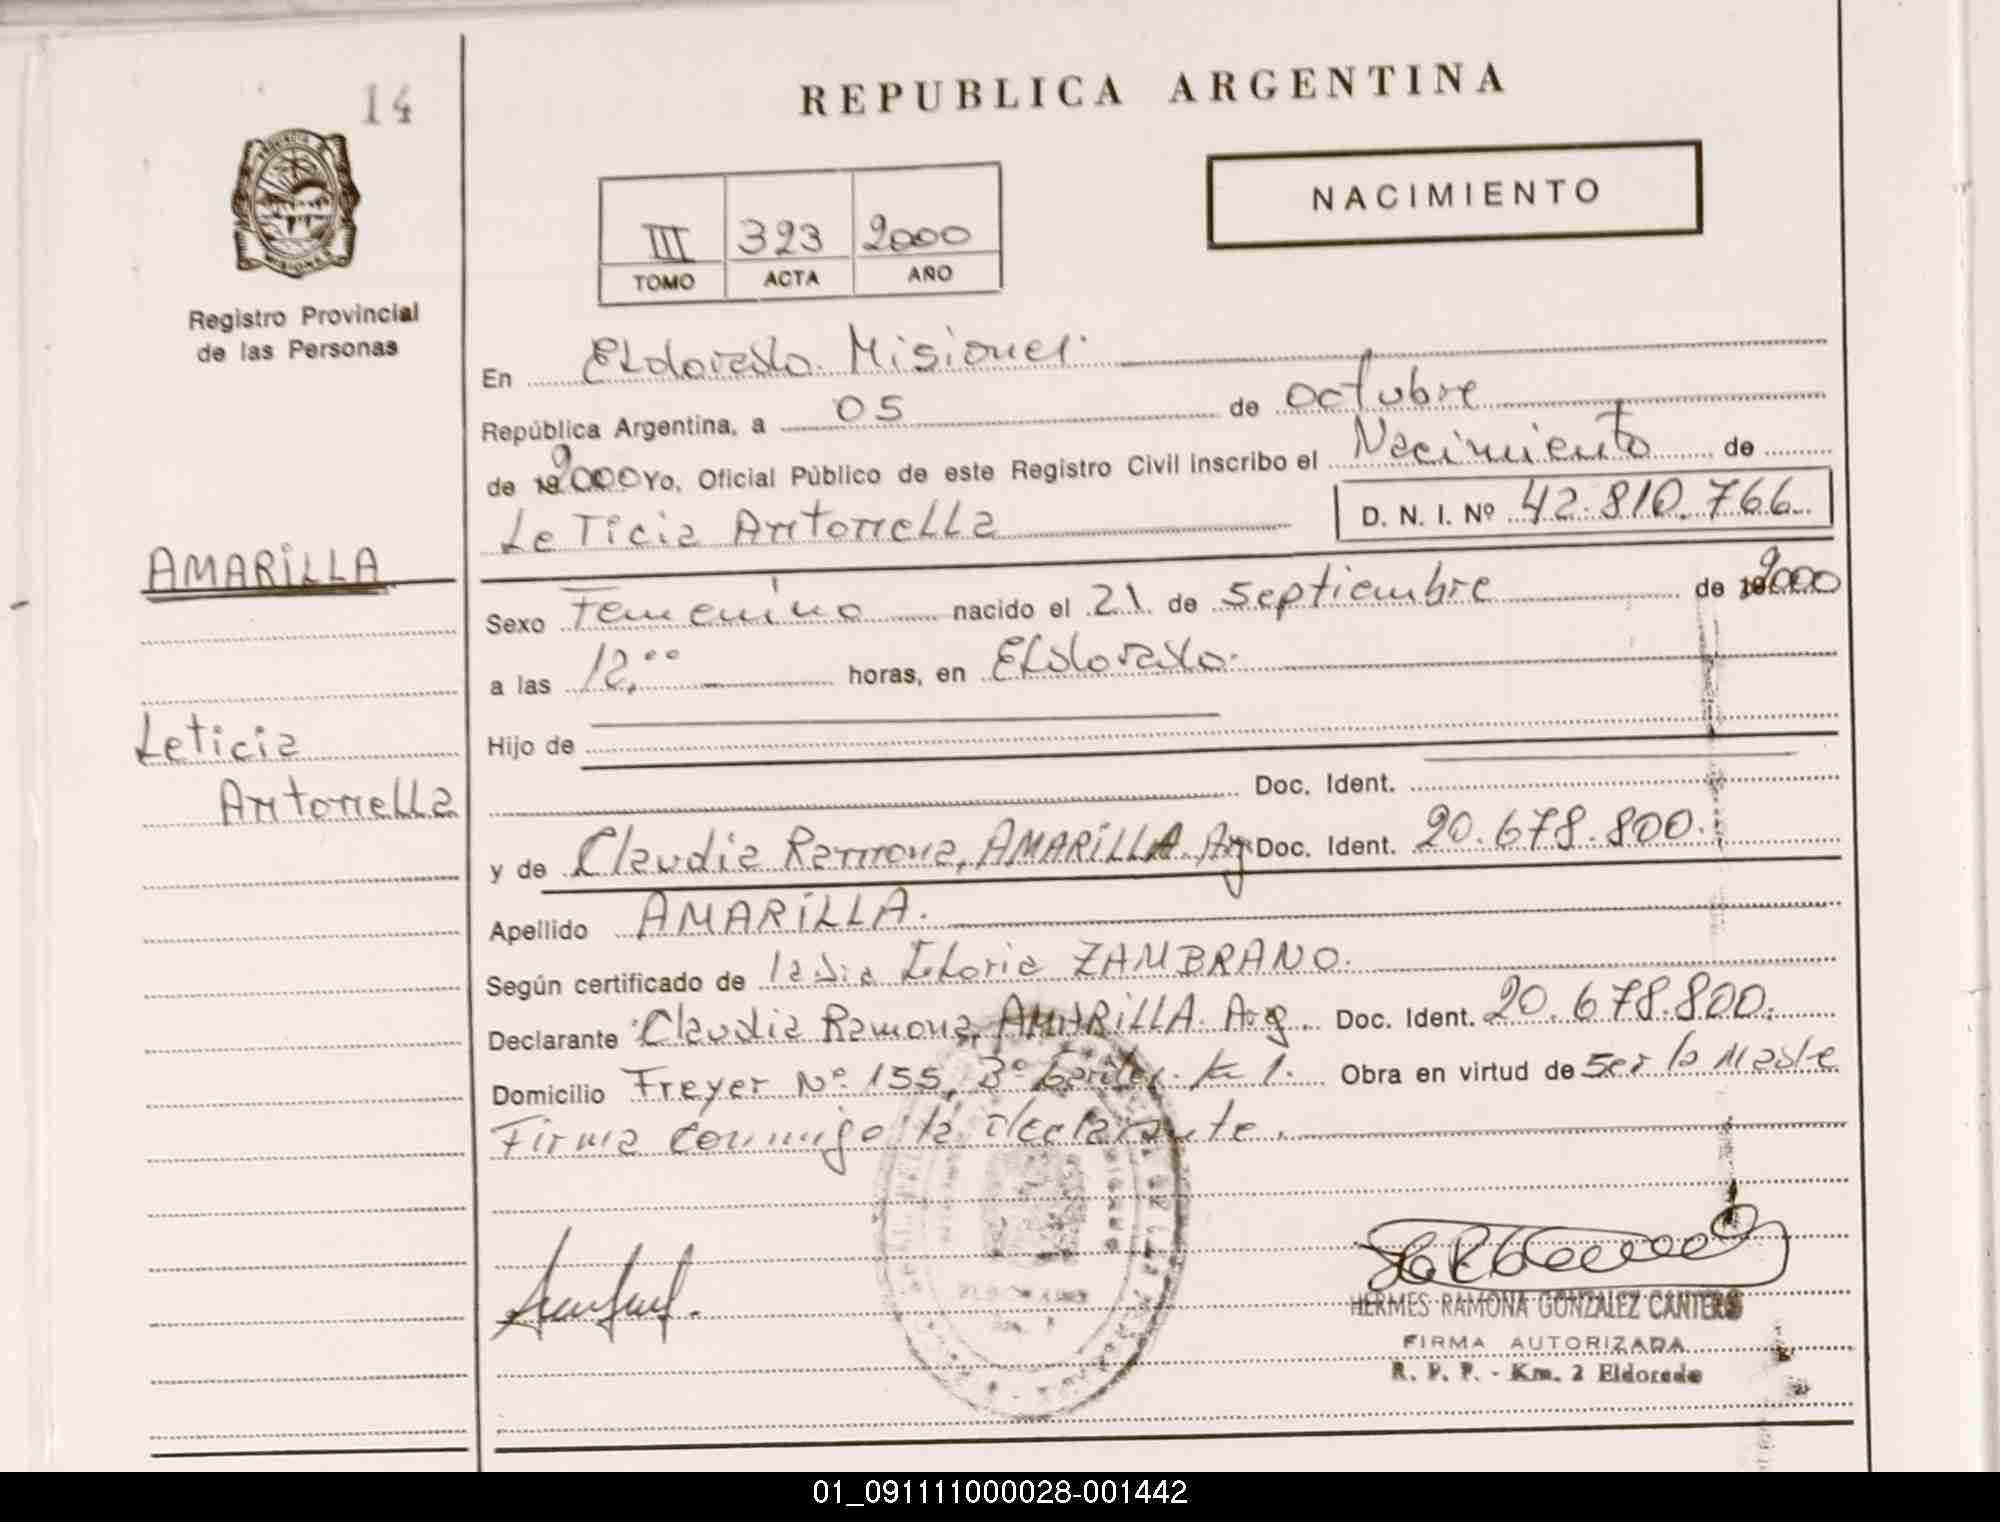 14
REPUBLICA ARGENTINA
NACIMIENTO
III 323 2000
TOMO ACTA AÑO
MISIONES
Registro Provincial
de las Personas
En Eldorado. Misiones.
República Argentina, a 05 de octubre
de 2000 Yo, Oficial Público de este Registro Civil inscribo el Nacimiento de
Leticia Antonella D. N. I. Nº 42.810.766.
AMARiLLA
Sexo Femenino nacido el 21 de septiembre de 2000
a las 12,00 horas, en Eldorado.
Leticia
Antonella
Hijo de
Doc. Ident.
y de Claudia Ramona, AMARiLLA. Arg Doc. Ident. 20.678.800.
Apellido AMARiLLA.
Según certificado de ZAMBRANO.
Declarante Claudia Ramona, AMARiLLA. Arg. Doc. Ident. 20.678.800.
Domicilio Freyer Nº 155, Bº Km 1. Obra en virtud de ser la Madre
Firma conmigo la declarante.
HERMES RAMONA GONZALEZ CANTERO
FIRMA AUTORIZADA
R. P. P. - Km. 2 Eldorado
01_091111000028-001442